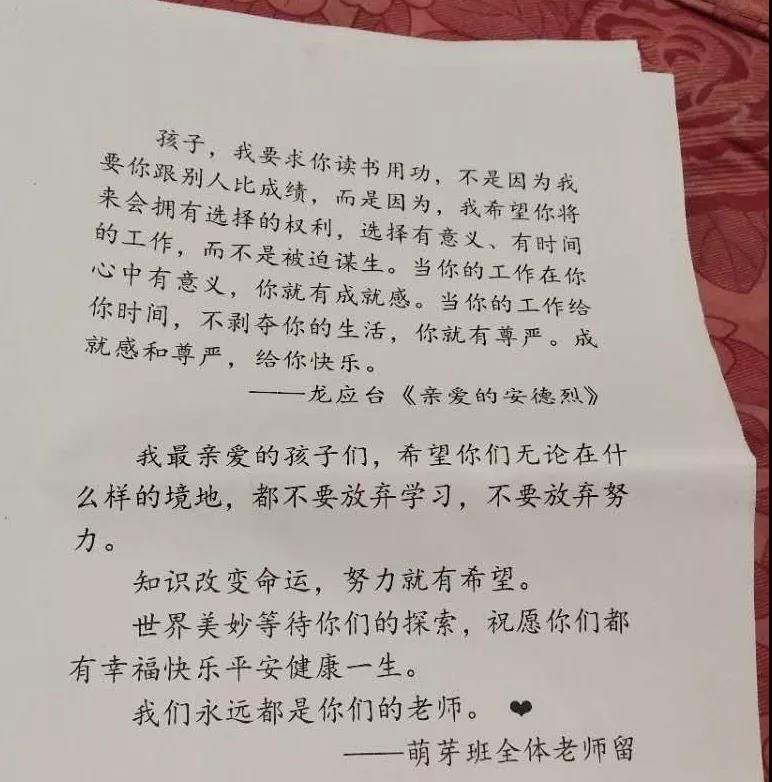 孩子，我要求你读书用功，不是因为我
要你跟别人比成绩，而是因为，我希望你将
来会拥有选择的权利，选择有意义、有时间
的工作，而不是被迫谋生。当你的工作在你
心中有意义，你就有成就感。当你的工作给
你时间，不剥夺你的生活，你就有尊严。成
就感和尊严，给你快乐。
——龙应台《亲爱的安德烈》
我最亲爱的孩子们，希望你们无论在什
么样的境地，都不要放弃学习，不要放弃努
力。
知识改变命运，努力就有希望。
世界美妙等待你们的探索，祝愿你们都
有幸福快乐平安健康一生。
我们永远都是你们的老师。❤
——萌芽班全体老师留